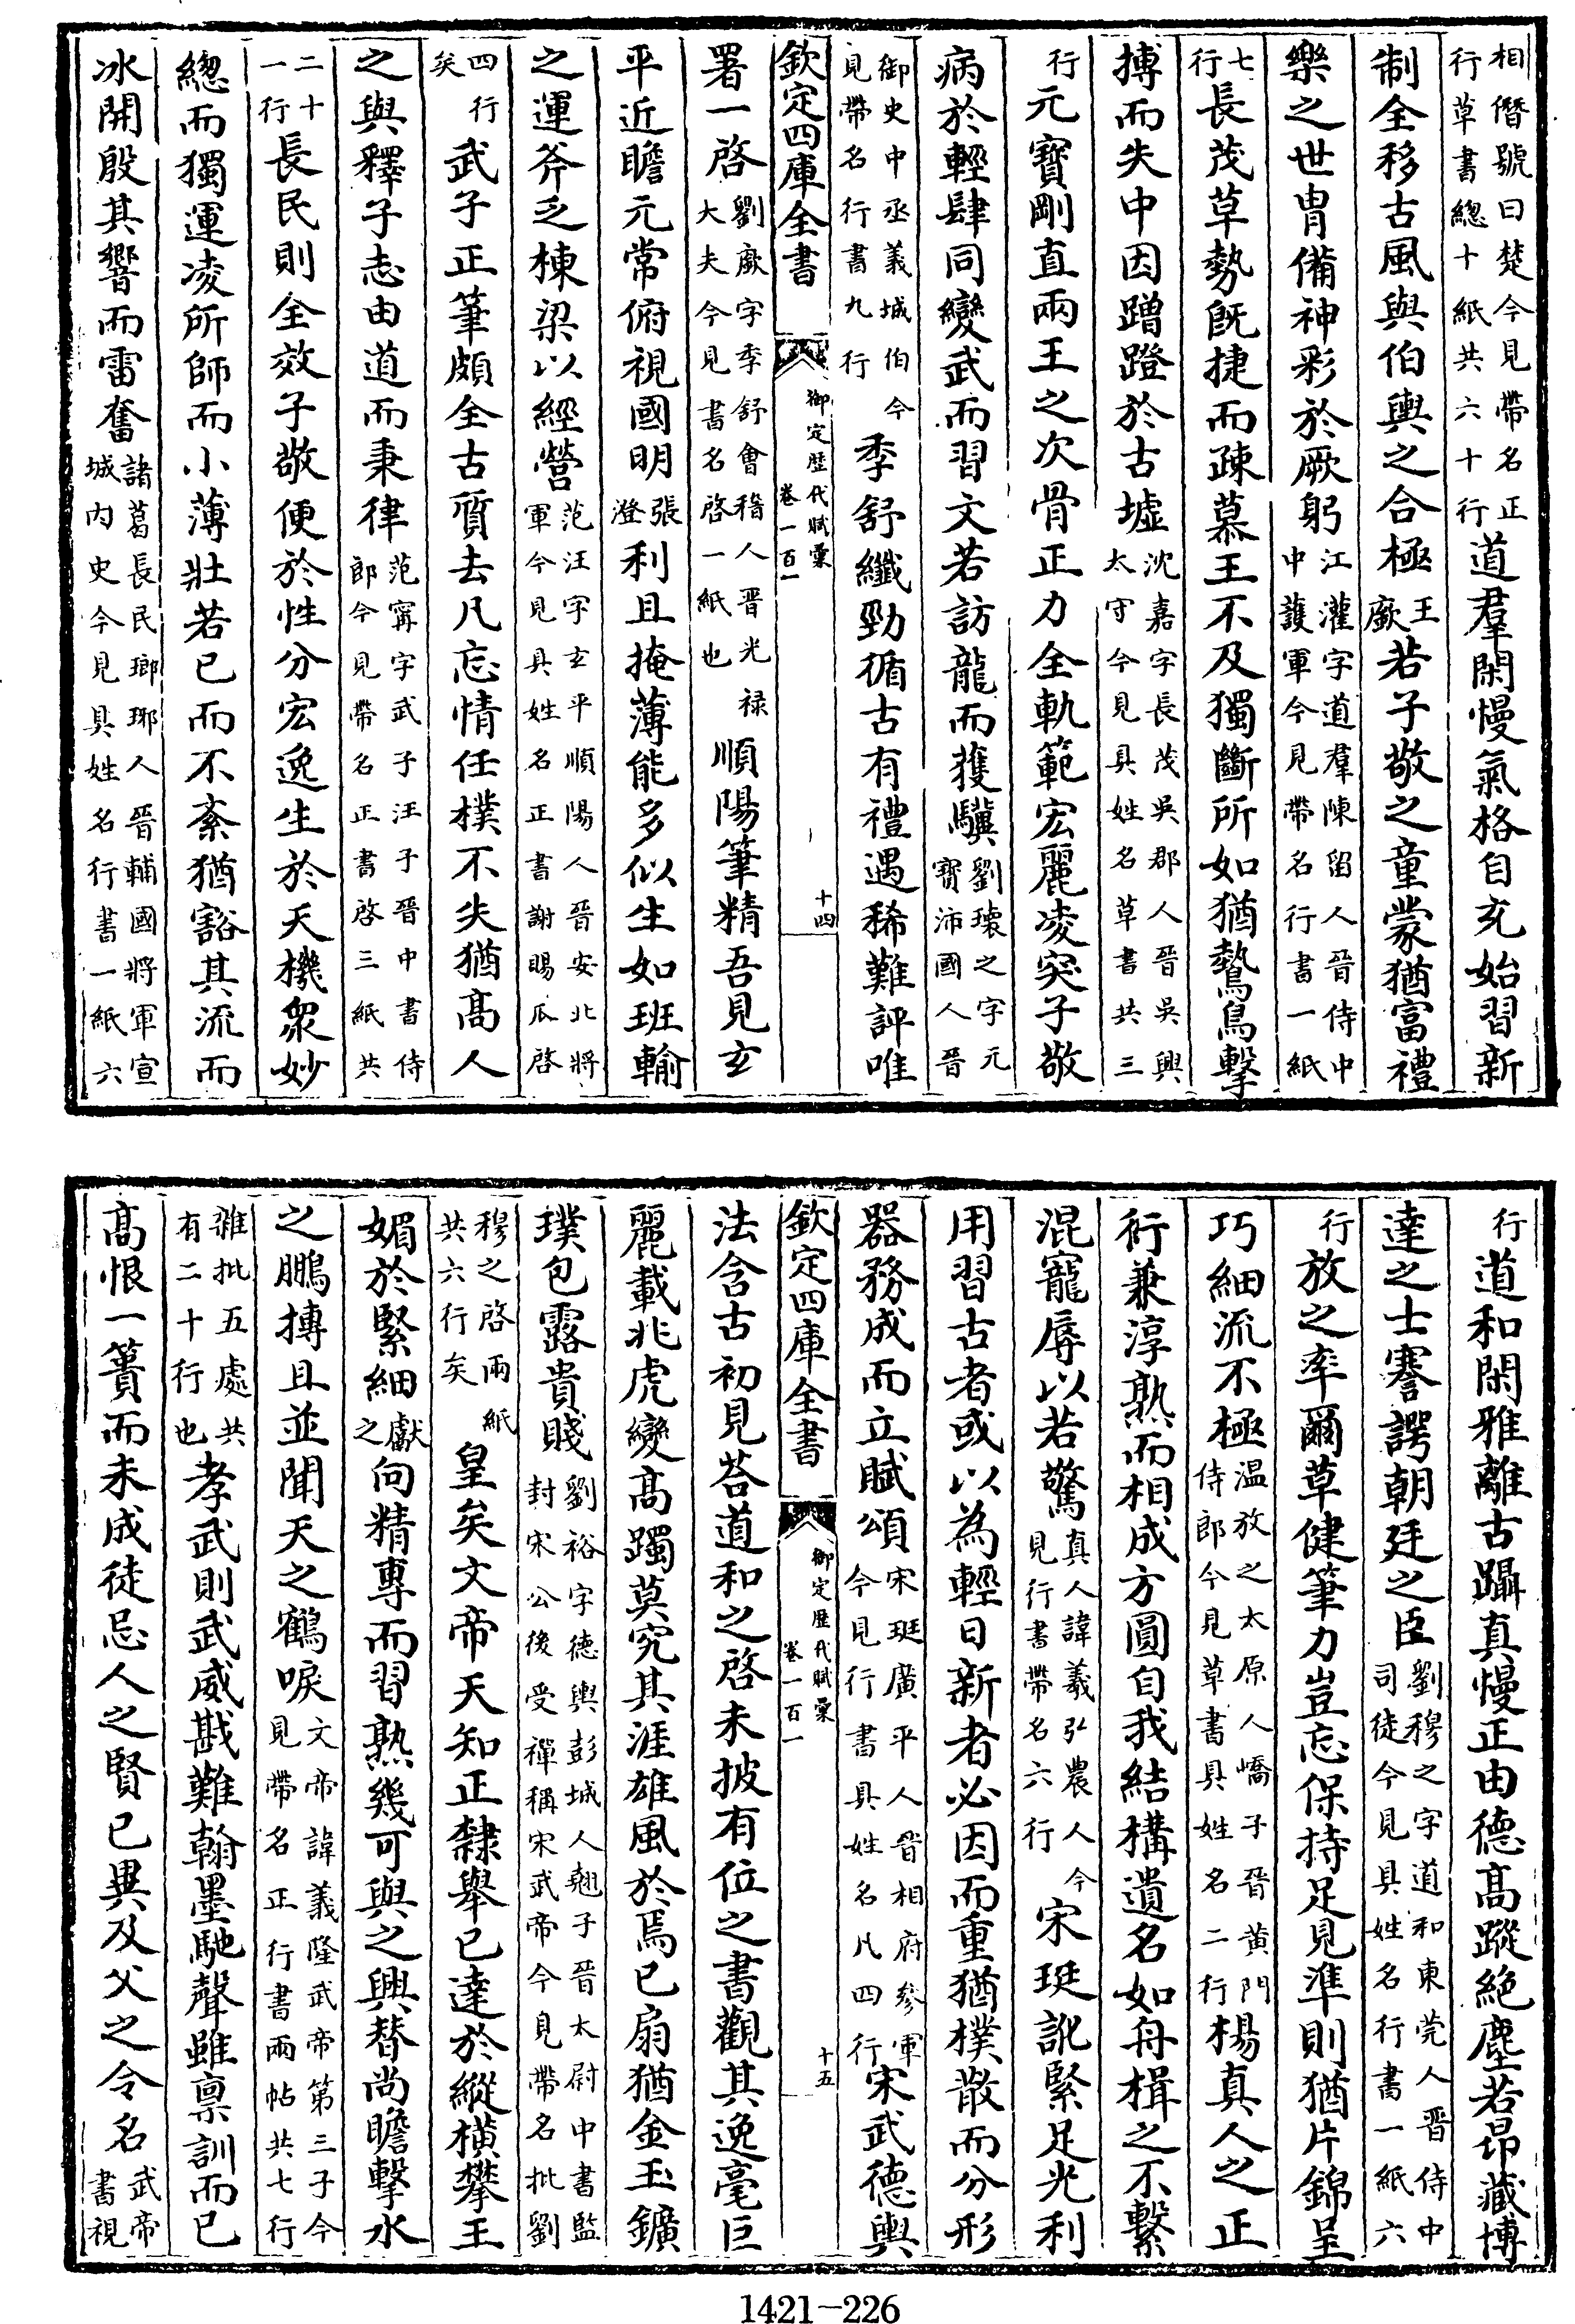 相僭號曰楚今見帶名正行草書總十紙共六十行道羣閑慢氣格自充始習新
制全移古風與伯輿之合極王廞若子敬之童蒙猶富禮
樂之世胄備神彩於厥躬江灌字道羣陳留人晉侍中中護軍今見帶名行書一紙
七行長茂草勢旣捷而疎慕王不及獨斷所如猶驁鳥擊
搏而失中因蹭蹬於古墟沈嘉字長茂吳郡人晉吳興太守今見具姓名草書共三
行元寶剛直兩王之次骨正力全軌範宏麗凌突子敬
病於輕肆同變武而習文若訪龍而獲驥劉瓌之字元寶沛國人晉
御史中丞義城伯今見帶名行書九行季舒纖勁循古有禮遇稀難評唯
欽定四庫全書 御定歷代賦彙 卷一百一 十四
署一啓劉廞字季舒會稽人晋光禄大夫今見書名啓一紙也順陽筆精吾見玄
平近瞻元常俯視國明張澄利且掩薄能多似生如班輸
之運斧乏棟梁以經營范汪字玄平順陽人晉安北將軍今見具姓名正書謝賜瓜啓
四行矣武子正筆頗全古質去凡忘情任樸不失猶高人
之與釋子志由道而秉律范寗字武子汪子晉中書侍郎今見帶名正書啓三紙共
二十一行長民則全效子敬便於性分宏逸生於天機衆妙
總而獨運凌所師而小薄壯若已而不紊猶豁其流而
冰開殷其響而雷奮諸葛長民瑯琊人晉輔國將軍宣城內史今見具姓名行書一紙六
行道和閑雅離古躡真慢正由德高蹤絕塵若昂藏博
達之士謇諤朝廷之臣劉穆之字道和東莞人晋侍中司徒今見具姓名行書一紙六
行放之率爾草健筆力豈忘保持足見準則猶片錦呈
巧細流不極温放之太原人嶠子晉黄門侍郎今見草書具姓名二行楊真人之正
行兼淳熟而相成方圓自我結構遺名如舟楫之不繫
混寵辱以若驚真人諱羲弘農人今見行書帶名六行宋珽訛緊足光利
用習古者或以為輕日新者必因而重猶樸散而分形
器務成而立賦頌宋珽廣平人晉相府參軍今見行書具姓名凡四行宋武德輿
欽定四庫全書 御定歷代賦彙 卷一百一 十五
法含古初見荅道和之啓未披有位之書觀其逸毫巨
麗載兆虎變高躅莫究其涯雄風於焉已扇猶金玉鑛
璞包露貴賤劉裕字德輿彭城人翹子晉太尉中書監封宋公後受禪稱宋武帝今見帶名批劉
穆之啓兩紙共六行矣皇矣文帝天知正隸舉已達於縱橫攀王
媚於緊細獻之向精專而習熟幾可與之興替尚瞻擊水
之鵬搏且並聞天之鶴唳文帝諱義隆武帝第三子今見帶名正行書兩帖共七行
雜批五處共有二十行也孝武則武威戡難翰墨馳聲雖禀訓而已
高恨一簣而未成徒忌人之賢已異及父之令名武帝書視
1421-226